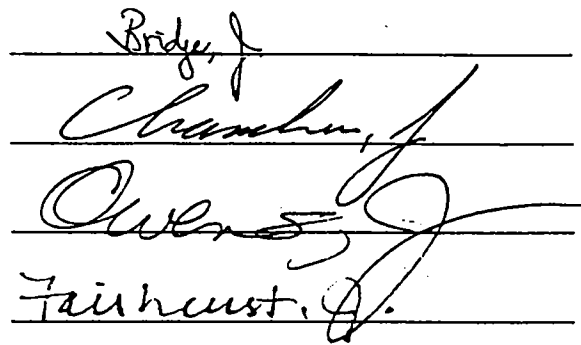 Bridge, J.
Chambers, J.
Owens, J.
Fairhurst, J.